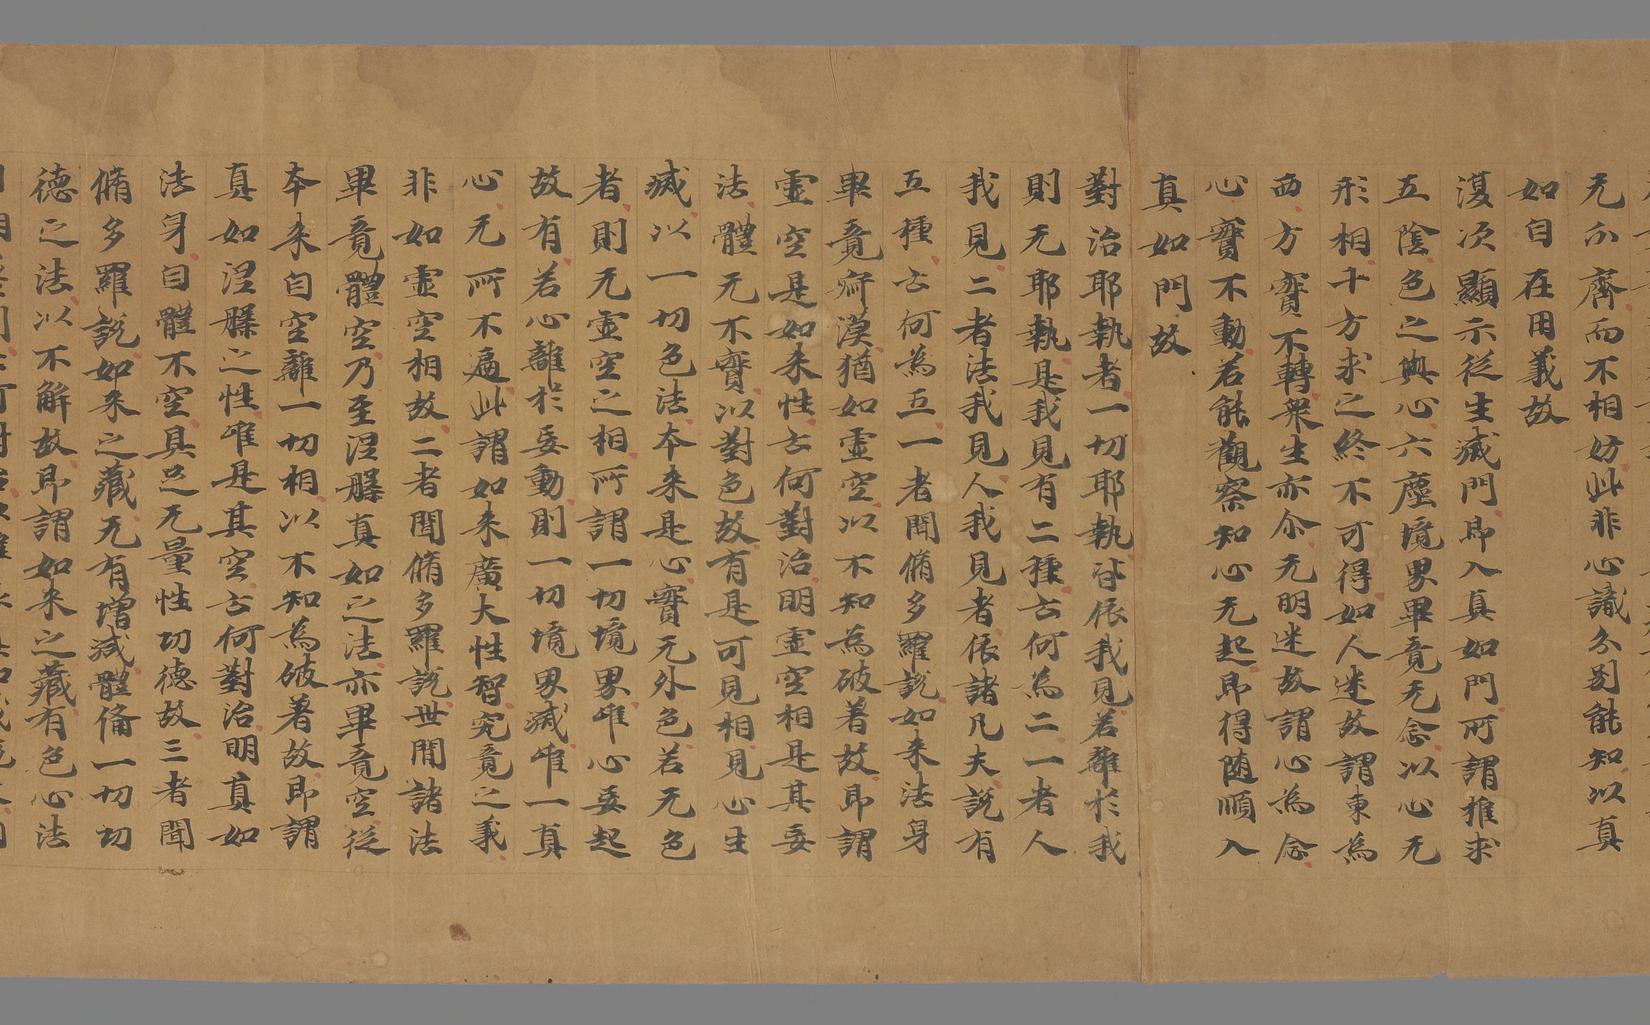 无分齊而不相妨此非心識分别能知以真
如自在用義故
復次顯示從生滅門即入真如門所謂推求
五陰色之與心六塵境界畢竟无念以心无
形相十方求之終不可得如人迷故謂東為
西方實不轉衆生亦尒无明迷故謂心為念
心實不動若能觀察知心无起即得随順入
真如門故
對治耶執者一切耶執皆依我見若離於我
則无耶執是我見有二種云何為二一者人
我見二者法我見人我見者依諸凡夫説有
五種云何為五一者聞脩多羅説如来法身
畢竟寂漠猶如虛空以不知為破著故即謂
虛空是如来性云何對治明虛空相是其妄
法體无不實以對色故有是可見相見心生
滅以一切色法夲来是心實无外色若无色
者則无虛空之相所謂一切境界唯心妄起
故有若心離於妄動則一切境界滅唯一真
心无所不遍此謂如来廣大性智究竟之義
非如虛空相故二者聞脩多羅説世間諸法
畢竟體空乃至涅槃真如之法亦畢竟空從
夲来自空離一切相以不知為破著故即謂
真如涅槃之性唯是其空云何對治明真如
法身自體不空具足无量性功徳故三者聞
脩多羅説如来之藏无有增減體俻一切功
徳之法以不解故即謂如来之藏有色心法